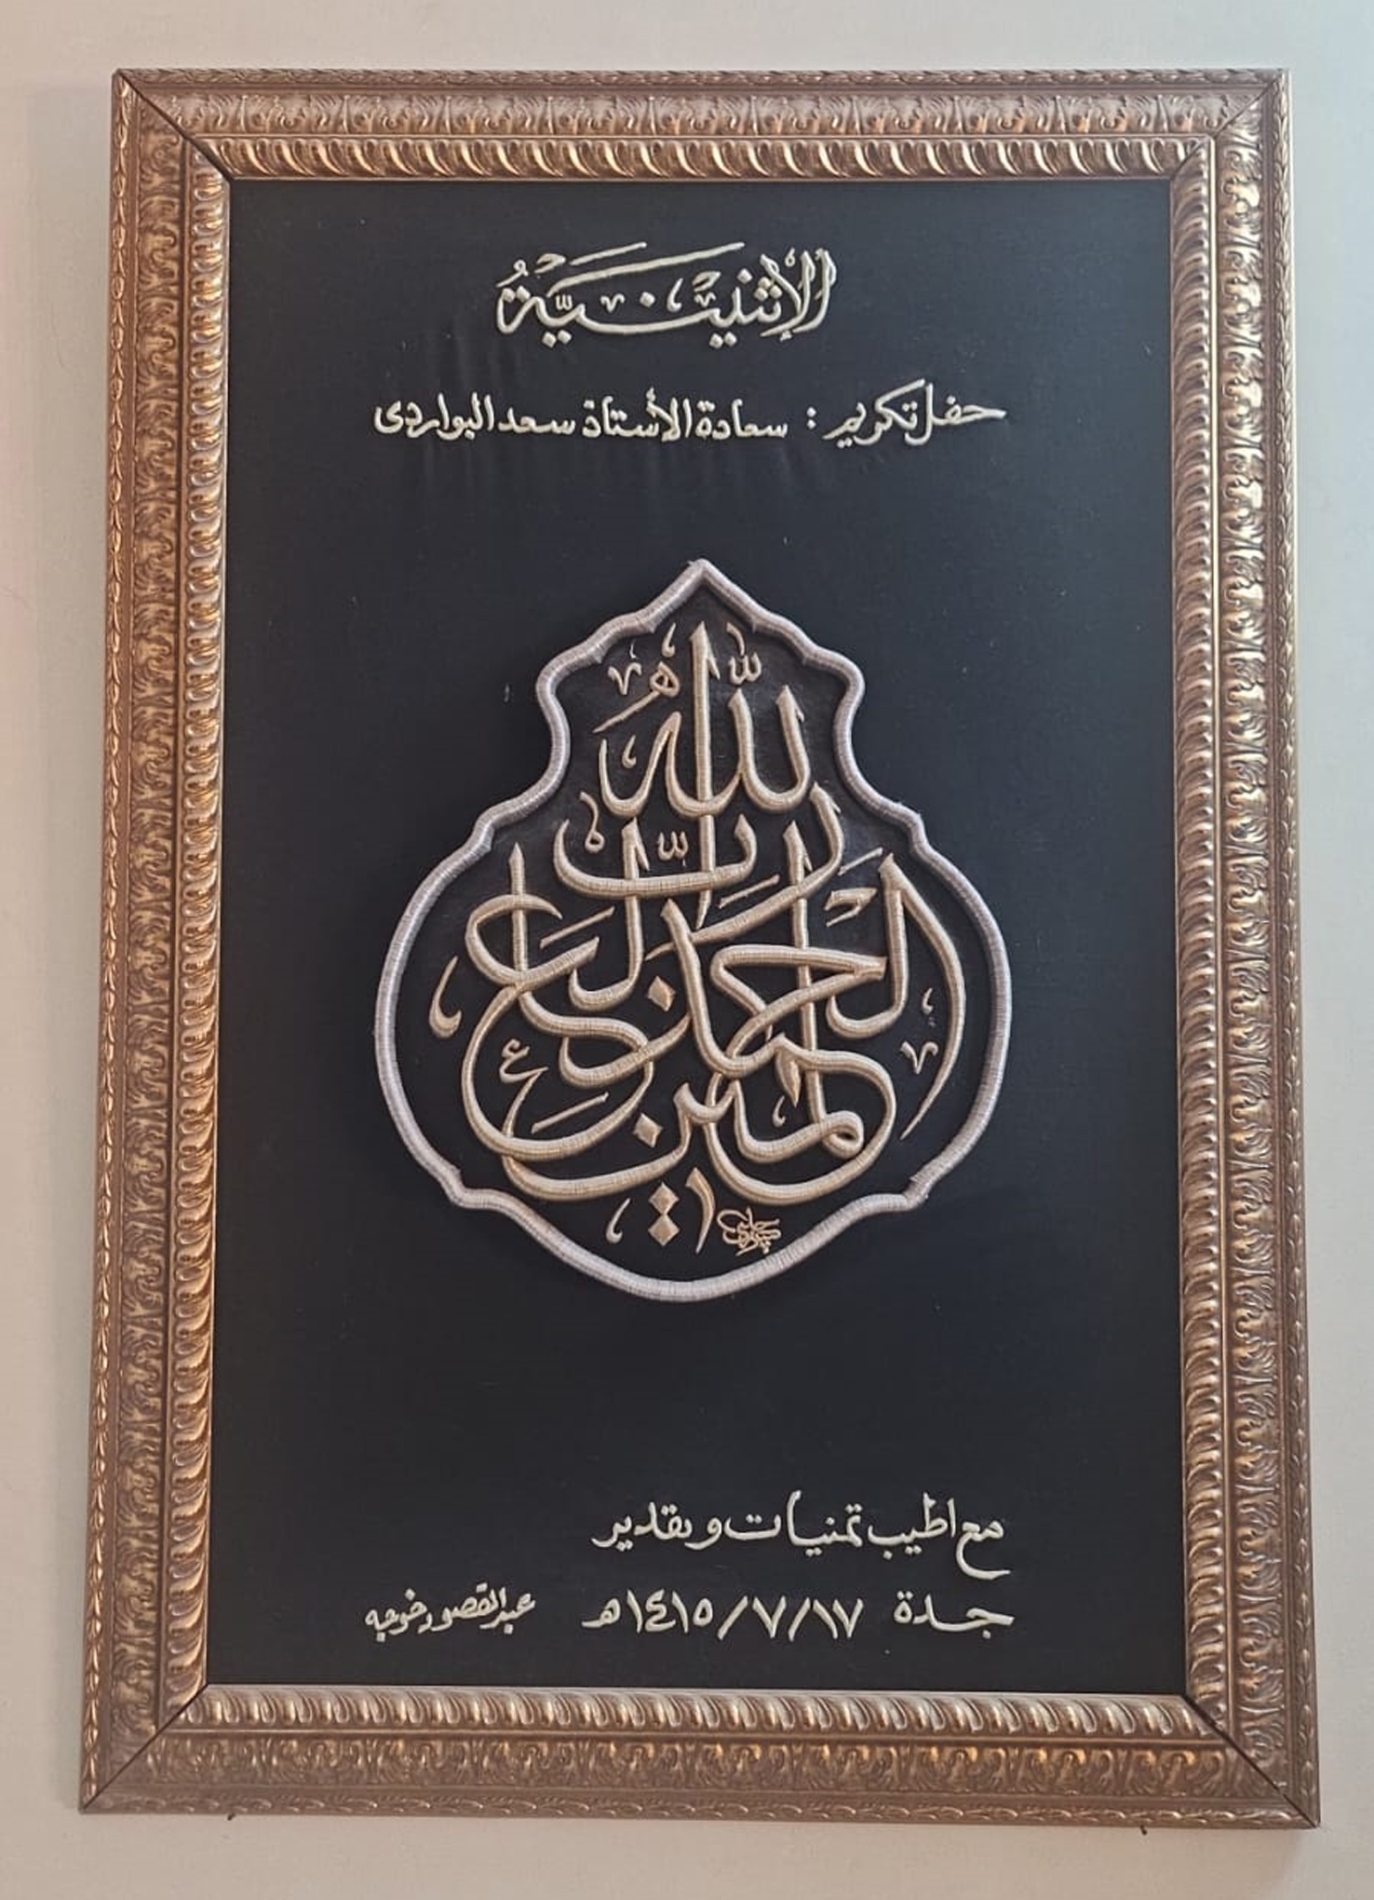 الإثنينية
حفل تكريم : سعادة الأستاذ سعد البواردى
الحمد لله رب العلمين
مع اطيب تمنيات وتقدير
جدة ١٤١٥/٧/١٧هـ عبدالمقصود خوجه